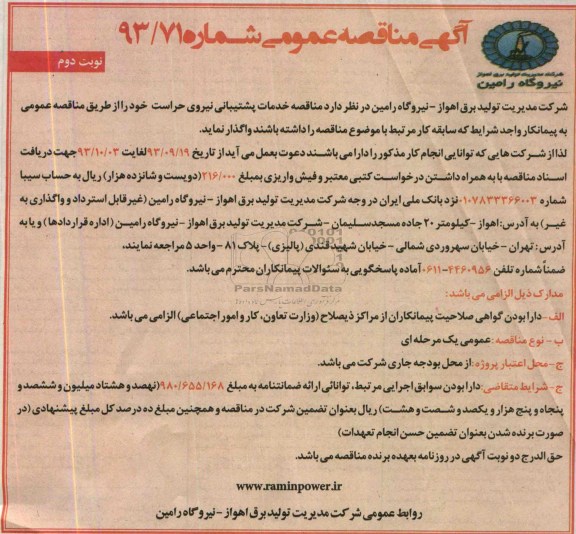 آگهی مناقصه عمومی شماره ۹۳/۷۱
نوبت دوم
شرکت مدیریت تولید برق اهواز
نیروگاه رامین
شرکت مدیریت تولید برق اهواز - نیروگاه رامین در نظر دارد مناقصه خدمات پشتیبانی نیروی حراست خود را از طریق مناقصه عمومی
به پیمانکار واجد شرایط که سابقه کار مرتبط با موضوع مناقصه را داشته باشند واگذار نماید.
لذا از شرکت هایی که توانایی انجام کار مذکور را دارا می باشند دعوت بعمل می آید از تاریخ ۹۳/۰۹/۱۹ لغایت ۹۳/۱۰/۰۳ جهت دریافت
اسناد مناقصه با به همراه داشتن درخواست کتبی معتبر و فیش واریزی بمبلغ ۲۱۶/۰۰۰ (دویست و شانزده هزار) ریال به حساب سیبا
شماره ۰۱۰۷۸۳۳۳۶۶۰۰۳ نزد بانک ملی ایران در وجه شرکت مدیریت تولید برق اهواز - نیروگاه رامین (غیر قابل استرداد و واگذاری به
غیر) به آدرس: اهواز - کیلومتر ۲۰ جاده مسجدسلیمان - شرکت مدیریت تولید برق اهواز - نیروگاه رامین (اداره قراردادها) و یا به
آدرس: تهران - خیابان سهروردی شمالی - خیابان شهید قندی (پالیزی) - پلاک ۸۱ - واحد ۵ مراجعه نمایند.
ضمناً شماره تلفن ۴۴۶۰۹۵۶-۰۶۱۱ آماده پاسخگویی به سئوالات پیمانکاران محترم می باشد.
ParsNamadData
مدارک ذیل الزامی می باشد:
الف - دارا بودن گواهی صلاحیت پیمانکاران از مراکز ذیصلاح (وزارت تعاون، کار و امور اجتماعی) الزامی می باشد.
ب - نوع مناقصه: عمومی یک مرحله ای
ج - محل اعتبار پروژه: از محل بودجه جاری شرکت می باشد.
ح - شرایط متقاضی: دارا بودن سوابق اجرایی مرتبط، توانائی ارائه ضمانتنامه به مبلغ ۹۸۰/۶۵۵/۱۶۸ (نهصد و هشتاد میلیون و ششصد و
پنجاه و پنج هزار و یکصد و شصت و هشت) ریال بعنوان تضمین شرکت در مناقصه و همچنین مبلغ ده درصد کل مبلغ پیشنهادی (در
صورت برنده شدن بعنوان تضمین حسن انجام تعهدات)
حق الدرج دو نوبت آگهی در روزنامه بعهده برنده مناقصه می باشد.
www.raminpower.ir
روابط عمومی شرکت مدیریت تولید برق اهواز - نیروگاه رامین